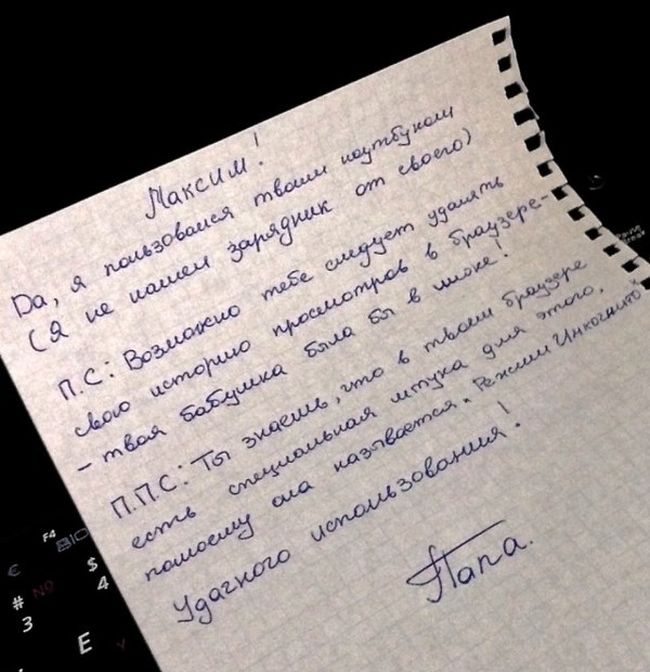 Максим!
Да, я пользовался твоим ноутбуком
(Я не нашел зарядник от своего)
П.С: Возможно тебе следует удалять
свою историю просмотров в браузере-
- твоя бабушка была бы в шоке!
П.П.С: Ты знаешь, что в твоем браузере
есть специальная штука для этого,
помоему она называется "Режим Инкогнито"
Удачного использования!
Папа.
F4
€
$
#
4
3
E